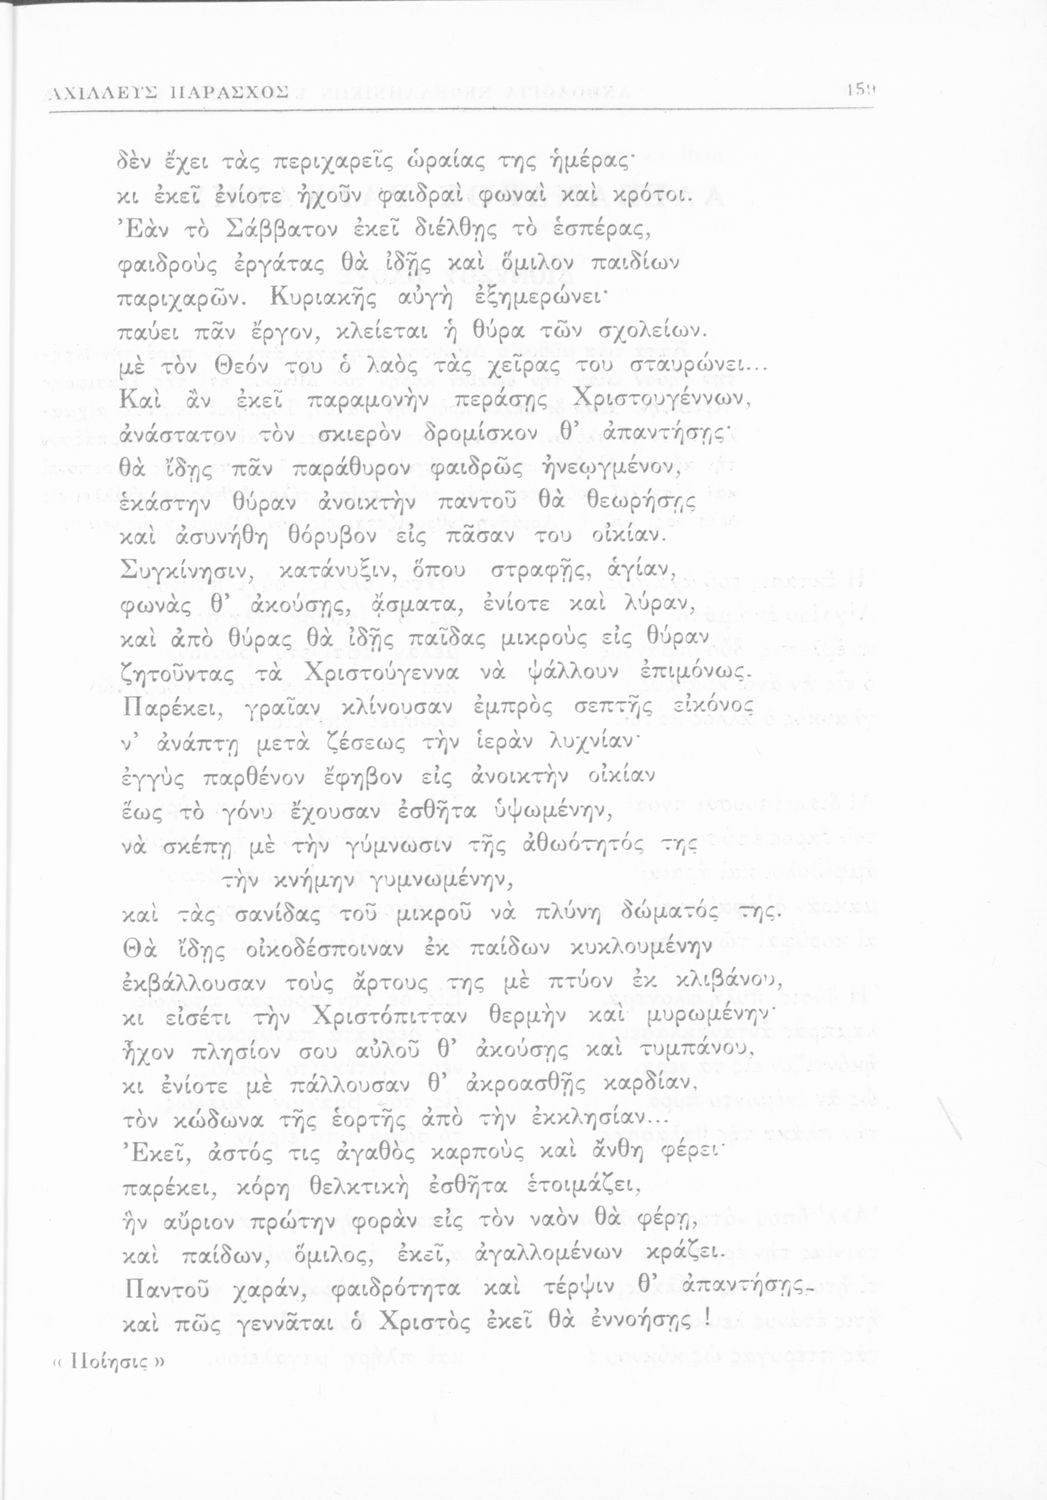 ΑΧΙΛΛΕΥΣ ΠΑΡΑΣΧΟΣ 159
δὲν ἔχει τὰς περιχαρεῖς ὡραίας της ἡμέρας·
κι ἐκεῖ ἐνίοτε ἠχοῦν φαιδραὶ φωναὶ καὶ κρότοι.
Ἐὰν τὸ Σάββατον ἐκεῖ διέλθῃς τὸ ἑσπέρας,
φαιδροὺς ἐργάτας θὰ ἰδῇς καὶ ὅμιλον παιδίων
παριχαρῶν. Κυριακῆς αὐγὴ ἐξημερώνει·
παύει πᾶν ἔργον, κλείεται ἡ θύρα τῶν σχολείων.
μὲ τὸν Θεόν του ὁ λαὸς τὰς χεῖρας του σταυρώνει...
Καὶ ἂν ἐκεῖ παραμονὴν περάσῃς Χριστουγέννων,
ἀνάστατον τὸν σκιερὸν δρομίσκον θ' ἀπαντήσῃς·
θὰ ἴδῃς πᾶν παράθυρον φαιδρῶς ἠνεῳγμένον,
ἑκάστην θύραν ἀνοικτὴν παντοῦ θὰ θεωρήσῃς
καὶ ἀσυνήθη θόρυβον εἰς πᾶσαν του οἰκίαν.
Συγκίνησιν, κατάνυξιν, ὅπου στραφῇς, ἁγίαν,
φωνὰς θ' ἀκούσῃς, ᾄσματα, ἐνίοτε καὶ λύραν,
καὶ ἀπὸ θύρας θὰ ἰδῇς παῖδας μικροὺς εἰς θύραν
ζητοῦντας τὰ Χριστούγεννα νὰ ψάλλουν ἐπιμόνως.
Παρέκει, γραῖαν κλίνουσαν ἐμπρὸς σεπτῆς εἰκόνος
ν' ἀνάπτῃ μετὰ ζέσεως τὴν ἱερὰν λυχνίαν·
ἐγγὺς παρθένον ἔφηβον εἰς ἀνοικτὴν οἰκίαν
ἕως τὸ γόνυ ἔχουσαν ἐσθῆτα ὑψωμένην,
νὰ σκέπῃ μὲ τὴν γύμνωσιν τῆς ἀθωότητός της
τὴν κνήμην γυμνωμένην,
καὶ τὰς σανίδας τοῦ μικροῦ νὰ πλύνῃ δώματός της.
Θὰ ἴδῃς οἰκοδέσποιναν ἐκ παίδων κυκλουμένην
ἐκβάλλουσαν τοὺς ἄρτους της μὲ πτύον ἐκ κλιβάνου,
κι εἰσέτι τὴν Χριστόπιτταν θερμὴν καὶ μυρωμένην·
ἦχον πλησίον σου αὐλοῦ θ' ἀκούσῃς καὶ τυμπάνου,
κι ἐνίοτε μὲ πάλλουσαν θ' ἀκροασθῇς καρδίαν,
τὸν κώδωνα τῆς ἑορτῆς ἀπὸ τὴν ἐκκλησίαν...
Ἐκεῖ, ἀστός τις ἀγαθὸς καρποὺς καὶ ἄνθη φέρει·
παρέκει, κόρη θελκτικὴ ἐσθῆτα ἑτοιμάζει,
ἣν αὔριον πρώτην φορὰν εἰς τὸν ναὸν θὰ φέρῃ,
καὶ παίδων, ὅμιλος, ἐκεῖ, ἀγαλλομένων κράζει.
Παντοῦ χαράν, φαιδρότητα καὶ τέρψιν θ' ἀπαντήσῃς,
καὶ πῶς γεννᾶται ὁ Χριστὸς ἐκεῖ θὰ ἐννοήσῃς !
« Ποίησις »